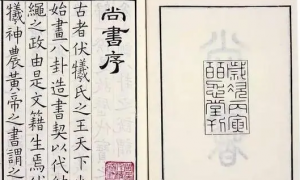 歲次丙寅
皕忍堂刊
尚書序
古者伏犧氏之王天下也
始畫八卦造書契以代結
繩之政由是文籍生焉伏
犧神農黃帝之書謂之